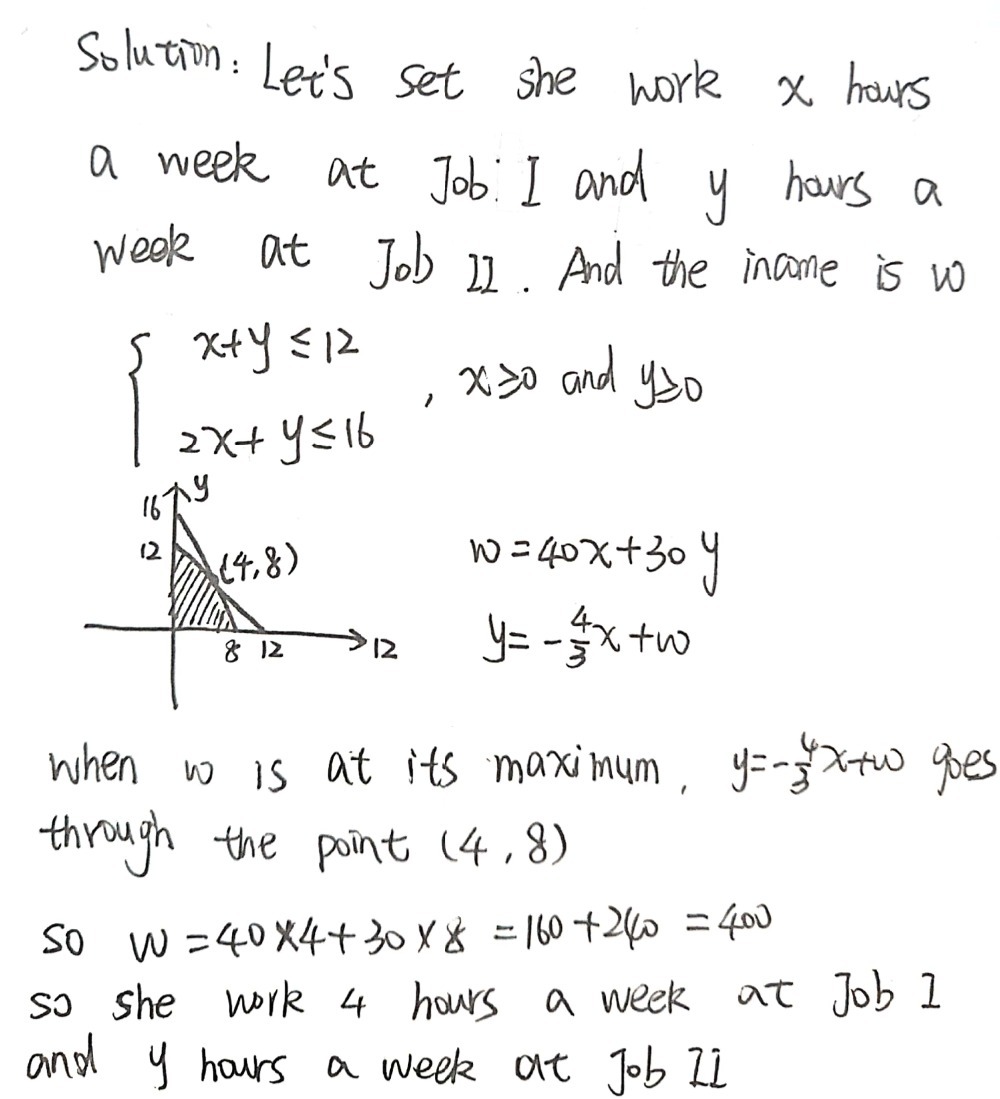 Solution: Let's set she work x hours
a week at Job I and y hours a
week at Job II. And the income is w
{ x+y ≤ 12
, x≥0 and y≥0
2x+y ≤ 16
y
16
12
(4,8)
8 12
12
w=40x+30y
y=-4/3x+w
when w is at its maximum, y=-4/3x+w goes
through the point (4,8)
so w=40×4+30×8=160+240=400
so she work 4 hours a week at Job I
and y hours a week at Job II